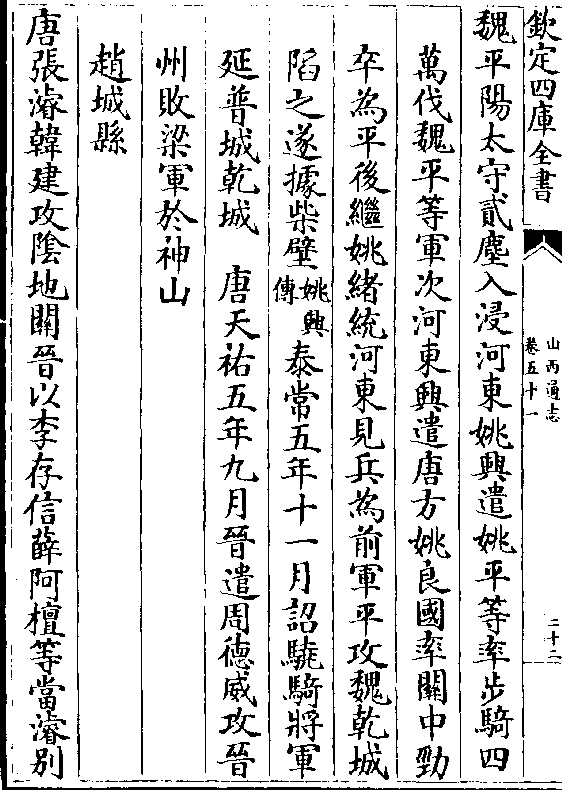 欽定四庫全書
山西通志
卷五十一
二十二
魏平陽太守貳塵入浸河東姚興遣姚平等率步騎四
萬伐魏平等軍次河東興遣唐方姚良國率關中勁
卒為平後繼姚緒統河東見兵為前軍平攻魏乾城
陷之遂據柴壁姚興傳泰常五年十一月詔驍騎將軍
延普城乾城　唐天祐五年九月晉遣周德威攻晉
州敗梁軍於神山
趙城縣
唐張濬韓建攻陰地關晉以李存信薛阿檀等當濬別